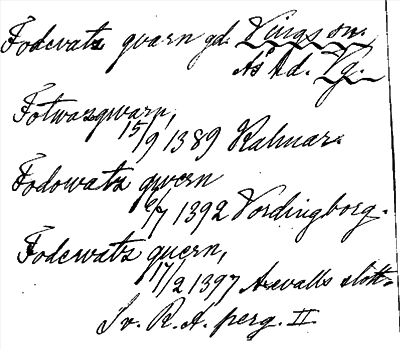 Fodewatz qvarn gd. Vings sn.
Ås hd. Vg.
Fotwazqwarn,
15/9 1389 Kalmar.
Fodowatz qwern
6/7 1392 Vordingborg.
Fodewatz quern,
17/2 1397 Axevalls slott.
Sv. R. A. perg. II.